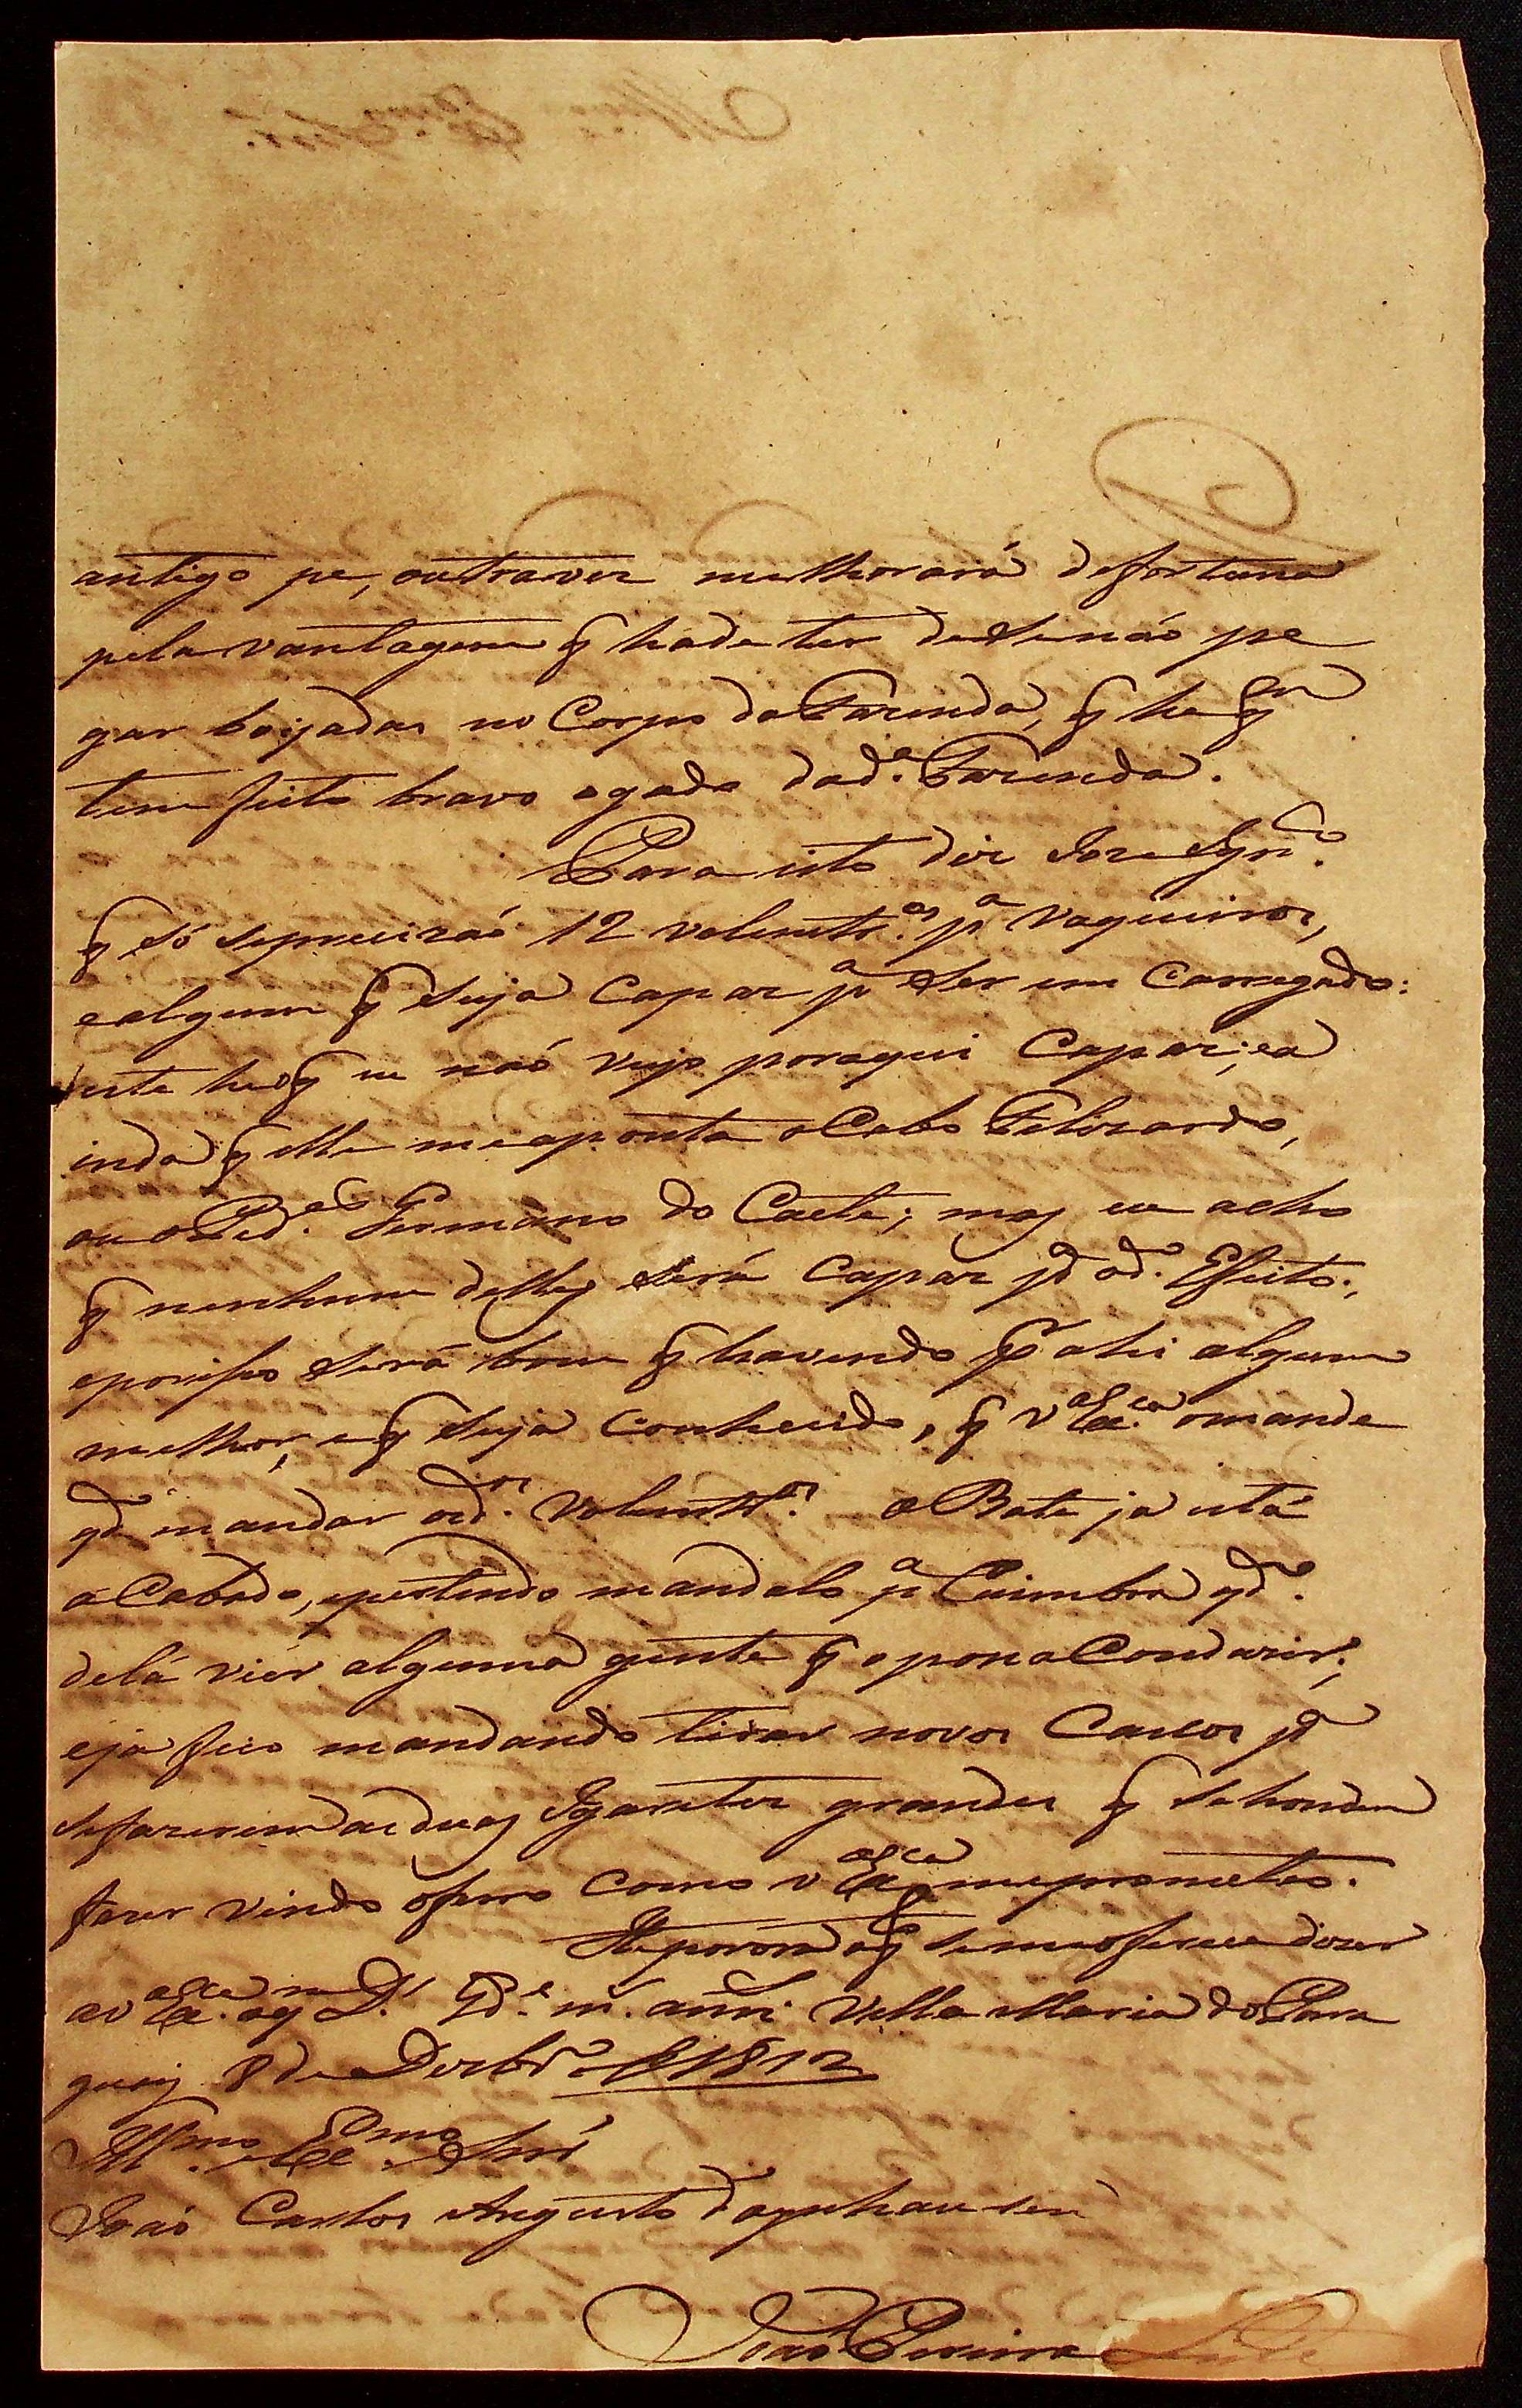 antigo pe, outravez melhorará defortuna
pelavantagem q̃ hade ter desenaõ pe
gar boijadas no Corpo daFazenda, q̃ he q̃
tem feito bravo ogado dad.ª Fazenda.
Para isto diz Joze
q̃ só sepreuizaõ 12 volunt.os p.ª vaqueiros,
ealgum q̃ seja Capaz p.ª ser em Carregado:
este heoq̃ eu naõ vejo poraqui Capaz; ea
inda q̃ elle meaponta oCabo Felizardo,
ou o Germano do Caete; mas eu acho
q̃ nenhum delles será Capaz p.ª od.º Efeito;
eporisso será bom q̃ havendo p.r ahi algum
melhor, eq̃ seja Conhecido, q̃ V Ex.ca omande
qd.º mandar od.os volunt.os oBote ja está
aCabado, epertendo mandalo p.ª Coimbra qd.º
delá vier alguma gente q̃ oposaConduzir;
eja fico mandando tirar novos Cascos p.ª
sefazerem asduas Igarites grandes q̃ sehonden
fazer vindo oferro Como V Ex.ca meprometeo.
He porora oq̃ semeoferece dizer
aV Ex.ca aq.m D.s G.de m. ann. Villa Maria doPara
guay 8 de Dezbr.º d 1812
Ill.mo e Ex.mo Snr
Joaõ Carlos Augusto d'Oyenhausen
Joaõ Pereira Leite